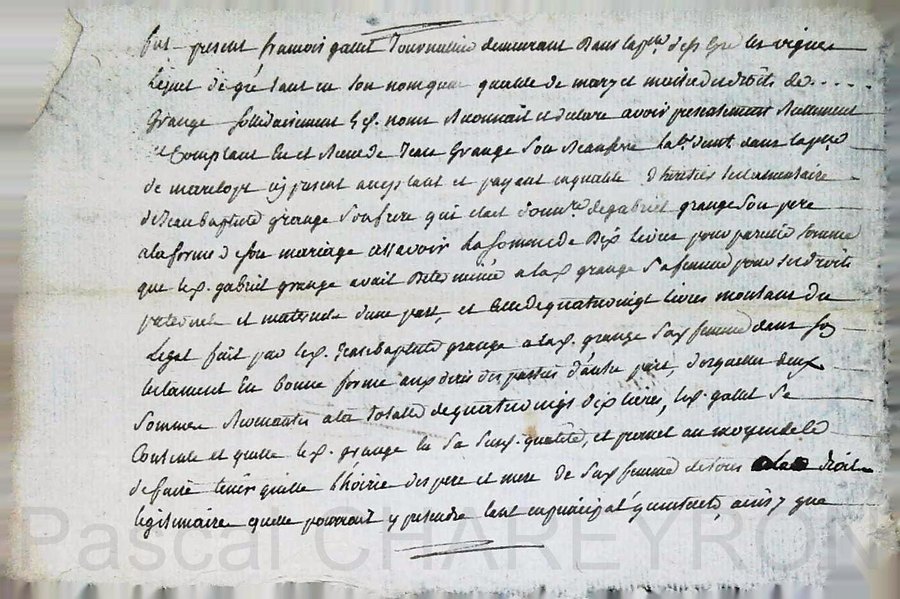 fut present francois galut Journallier demeurant Dans la p.sse de st les vignes
lequel de gré tant en son nom que qualité de mary et maitre des droits de ....
Grange sollidairement led. nomé Reconnait et declare avoir presentement Reellement
et Comptant Eu et Receu de Jean Grange son Beaufrere hab.t dans la p.sse
de marclopt icy present acceptant et payant en qualité d'heritier testamentaire
de Jean Baptiste grange son frere qui etait donn.re de gabriel grange son pere
a la forme de son mariage assavoir La somme de Dix livres pour pareille somme
que led. gabriel grange avait Determinée a lad. grange sa femme pour ses droits
paternels et maternels d'une part, et Celle de quatrevingt livres montant du
Legat fait par led. Jean Baptiste grange a lad. grange sad. femme dans son
testament En bonne forme aux dires des parties d'autre part, desquelles deux
sommes Revenantes a la totalle de quatrevingts dix livres, led. galut se
Contente et quitte led. grange En sa susd. qualité, et promet au moyen de ce
de faire tenir quitte l'hoirie des pere et mere de sad. femme de tous droits
legitimaires quelle pourrait y pretendre tant en principal qu'interets, ainsy que
Pascal CHAREYRON